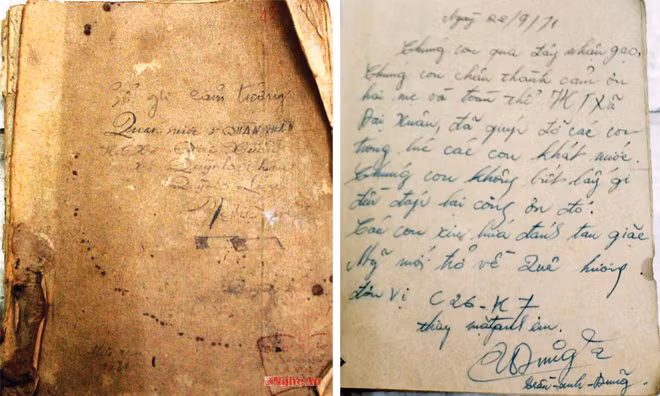 Sổ ghi cảm tưởng
Quán nước QUÂN NHÂN
H.T.X.
Nghệ An
Ngày 22/9/71
Chúng con qua đây nhận gạo.
Chúng con chân thanh cảm ơn
hai mẹ và toàn thể HTXã
Đại Xuân, đã giúp đỡ các con
trong lúc các con khát nước.
Chúng con không biết lấy gì
đền đáp lại công ơn đó.
Các con xin hứa đánh tan giặc
Mỹ mới trở về Quê hương
đơn vị C26-K7
thay mặt anh em.
Dũng
Trần-anh-Dũng.